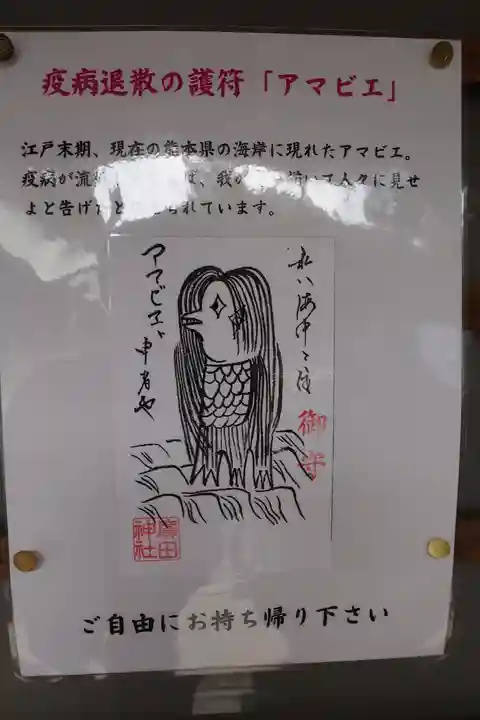 疫病退散の護符「アマビエ」
江戸末期、現在の熊本県の海岸に現れたアマビエ。
疫病が流 ば、我が いて人々に見せ
よと告げたと られています。
アマビヱと申者也
私ハ海中ニ住
御守
神社
ご自由にお持ち帰り下さい